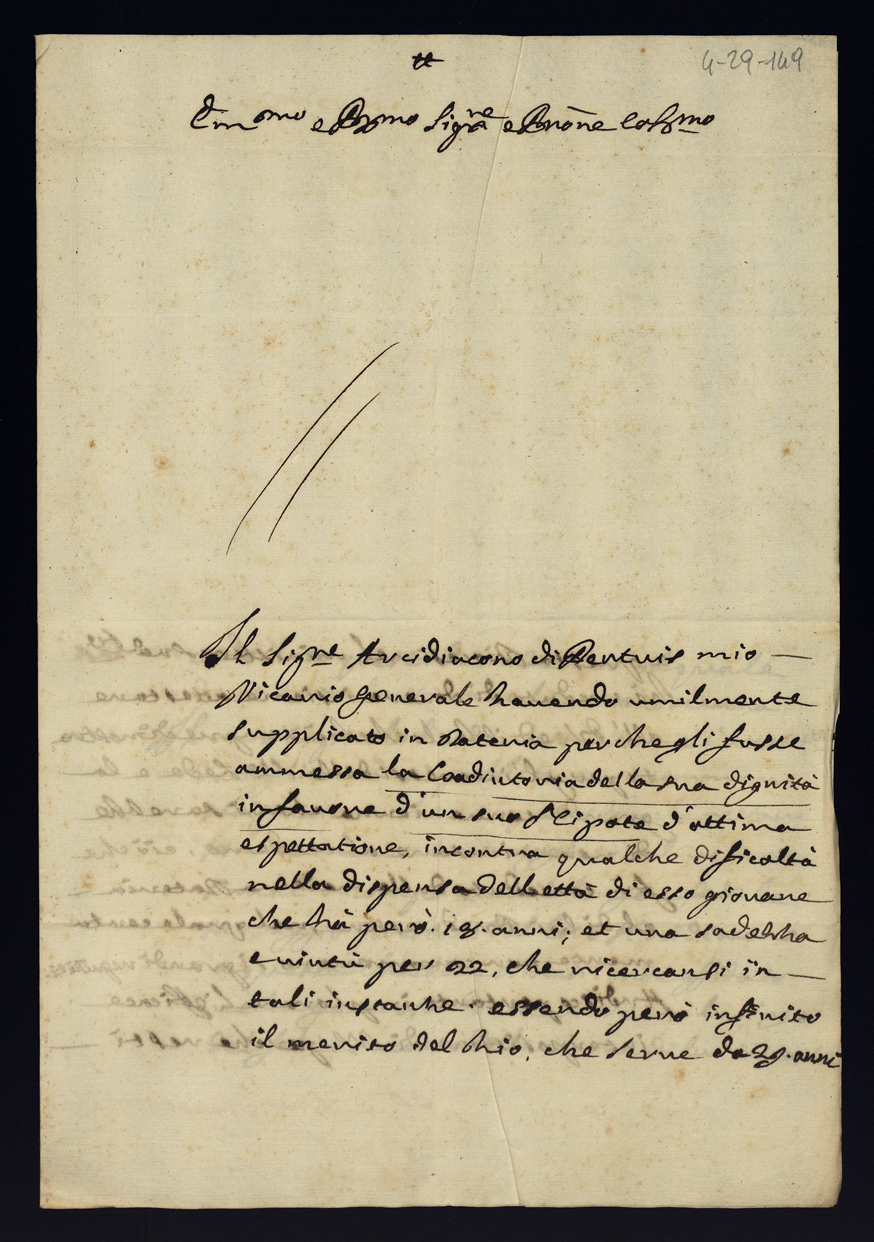 4-29-149
Em.mo e R.mo Sig.re e Pñone Col.mo
Il Sig.re Arcidiacono di mio
Vicario generale havendo umilmente
supplicato in Dateria perche gli fusse
ammessa la Coadiutoria della sua dignità
in favore d'un suo Nipote d'ottima
espettatione, incontra qualche dificoltà
nella dispensa dell età di esso giovane
che hà però anni; et una
e virtù per 22, che ricercansi in
tali instanhe essendo però infinito
il merito del hio, che serve da anni